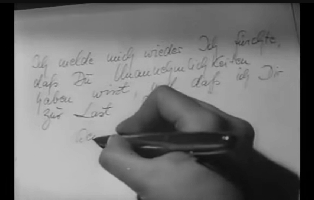 Ich melde mich wieder. Ich fürchte,
daß Du Unannehmlichkeiten
haben wirst, daß ich Dir
zur Last